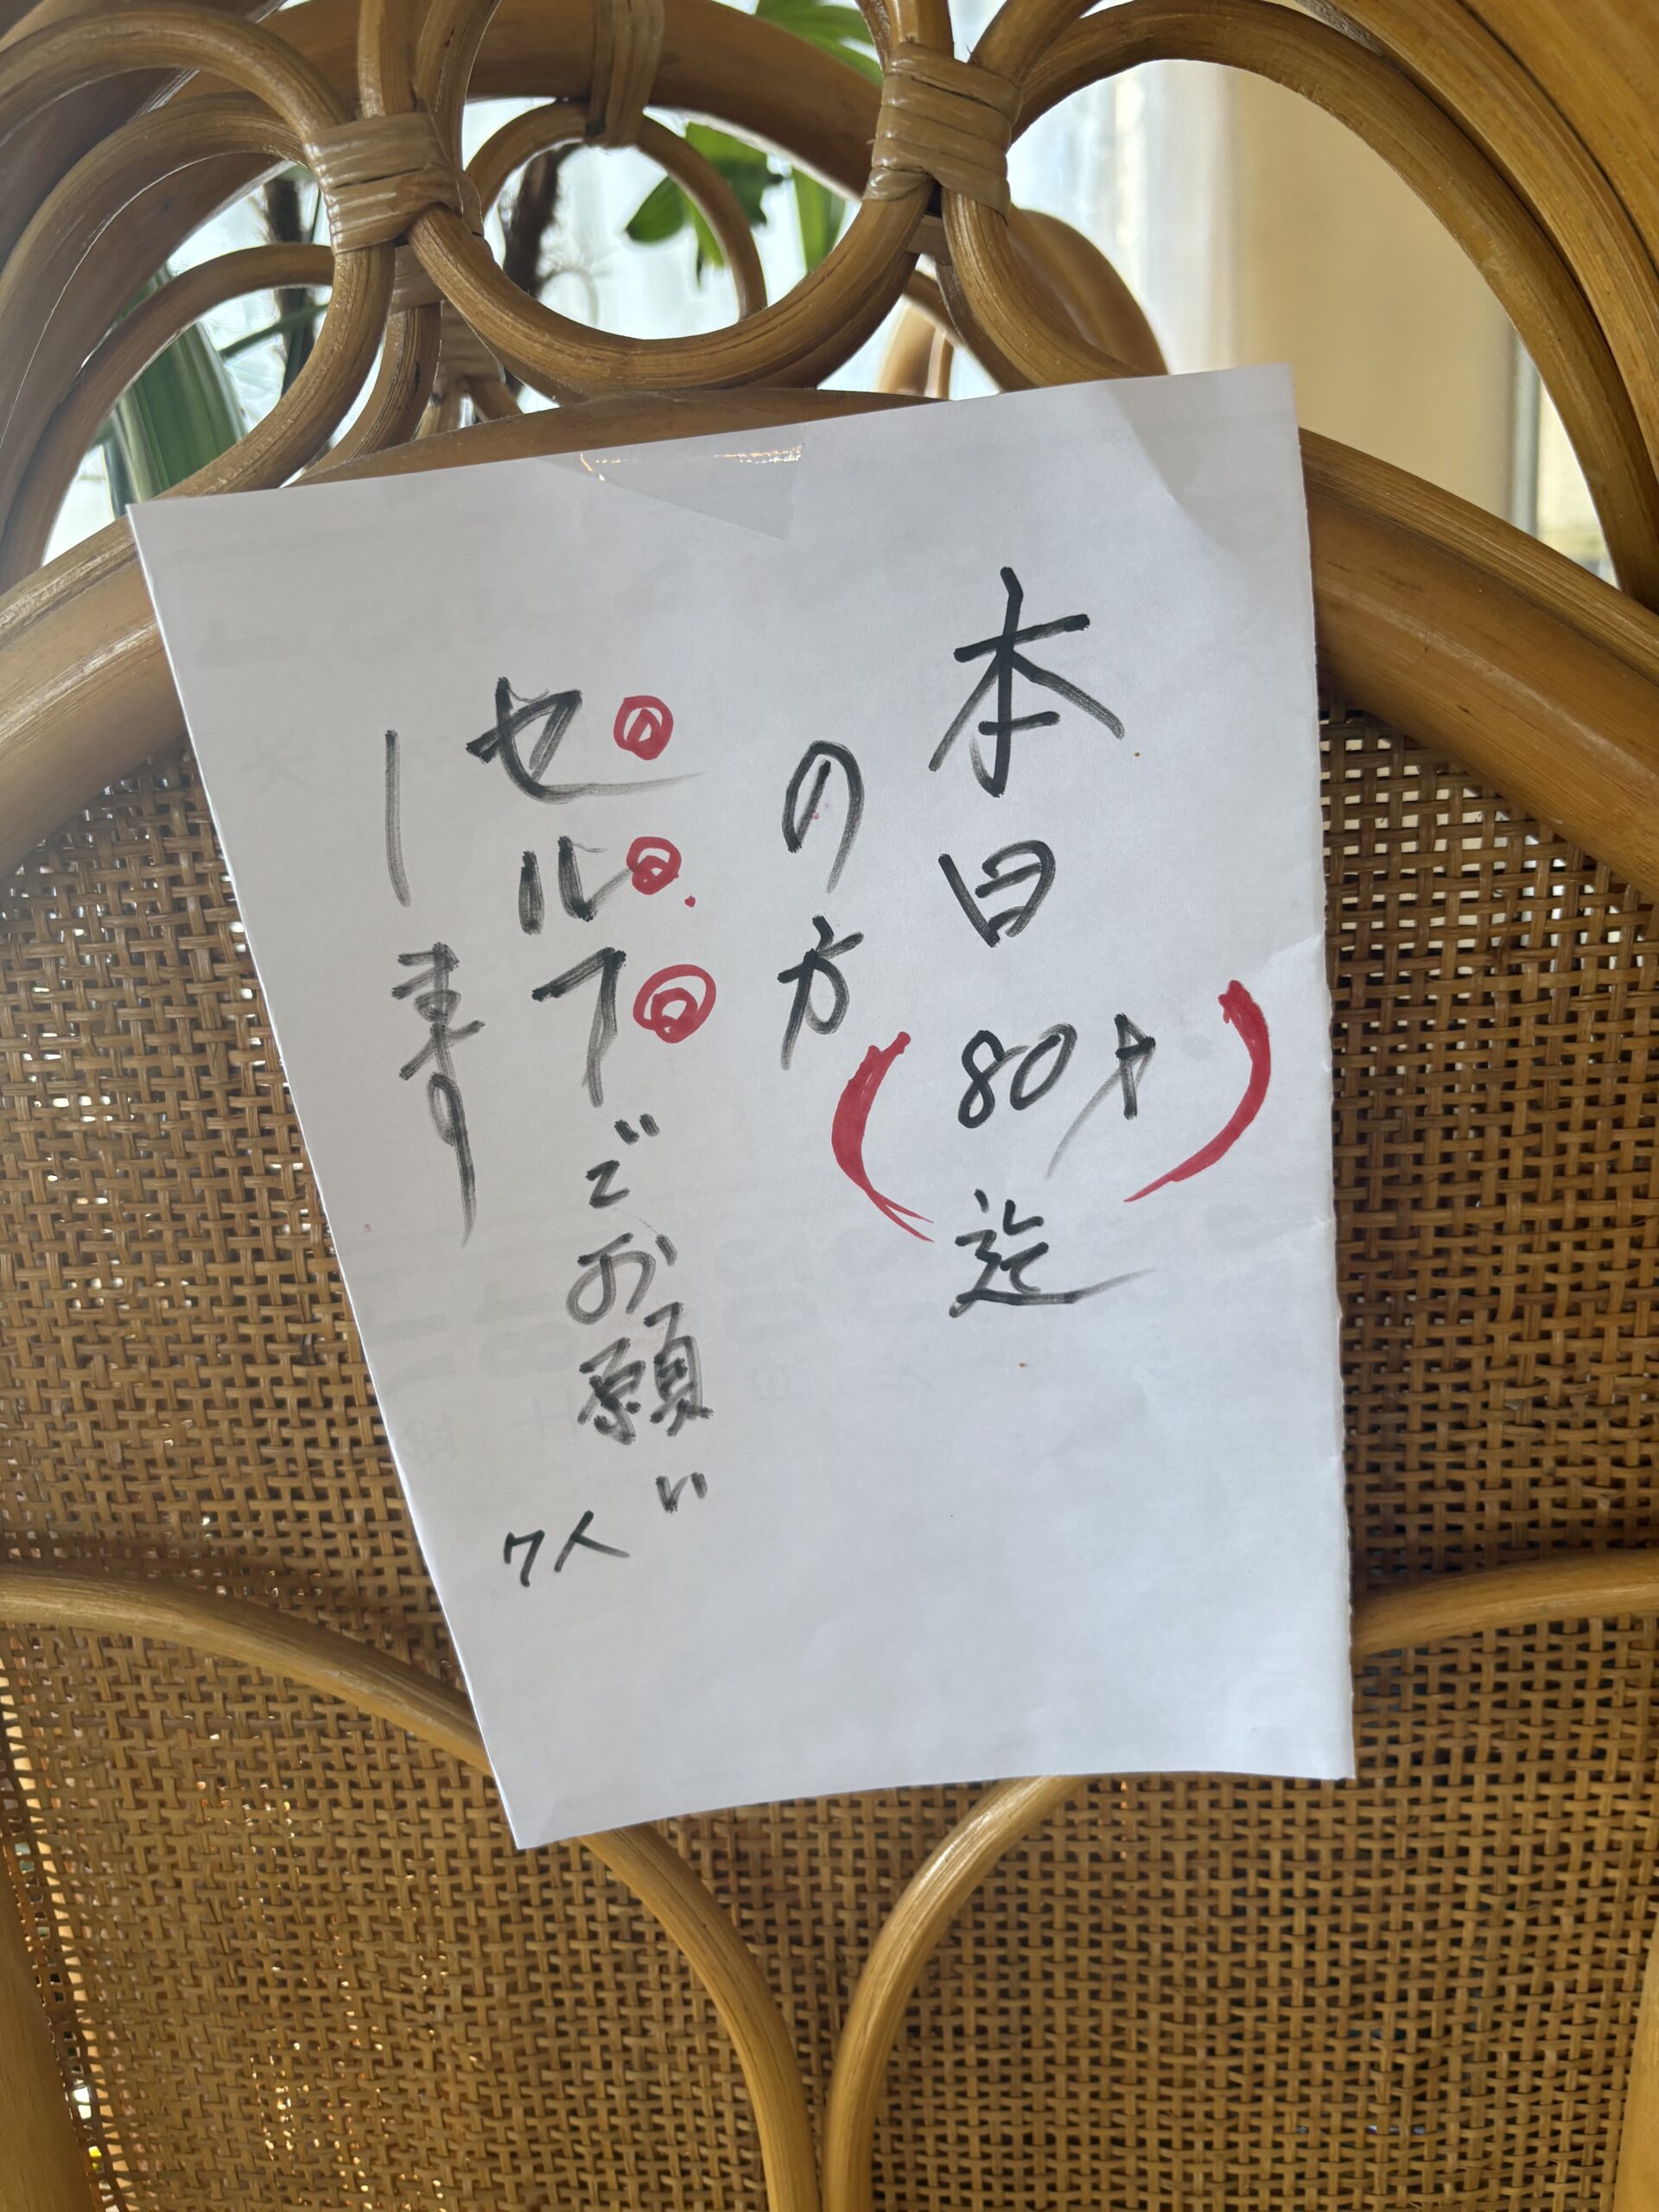 本日(80才)迄
の方
セルフでお願い
します
7人